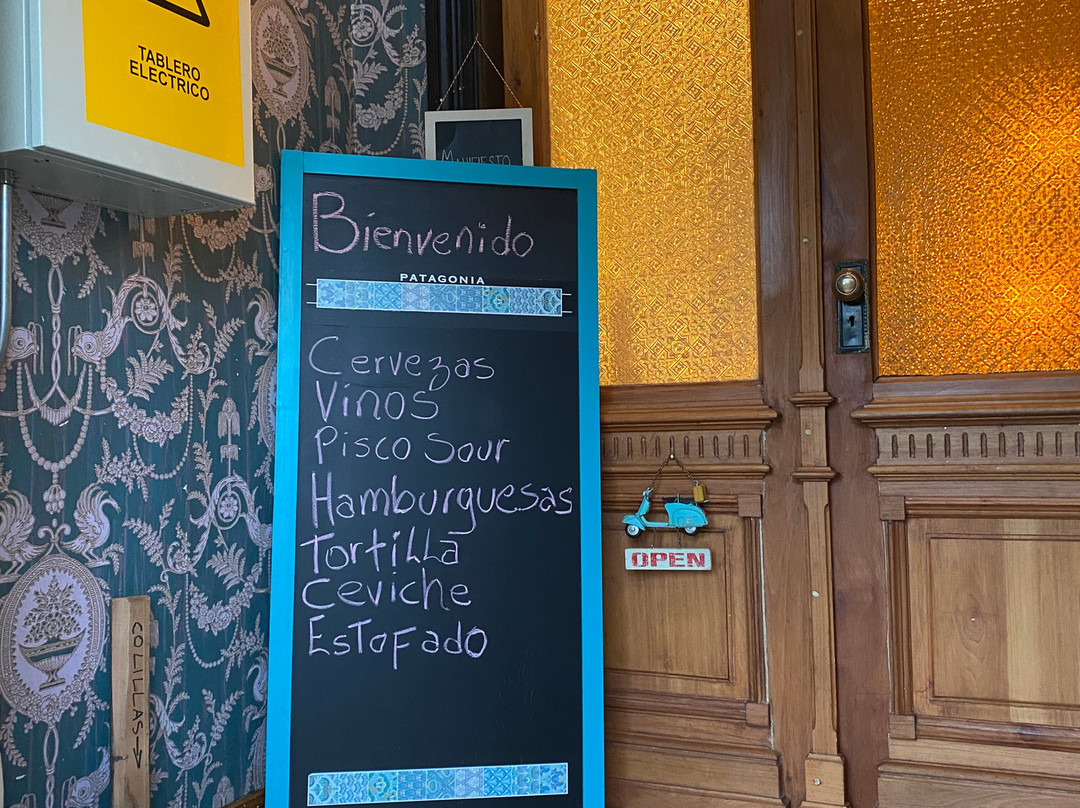 TABLERO
ELECTRICO
MANIFIESTO
Bienvenido
PATAGONIA
Cervezas
Vinos
Pisco Sour
Hamburguesas
Tortilla
Ceviche
Estofado
OPEN
COLILLAS